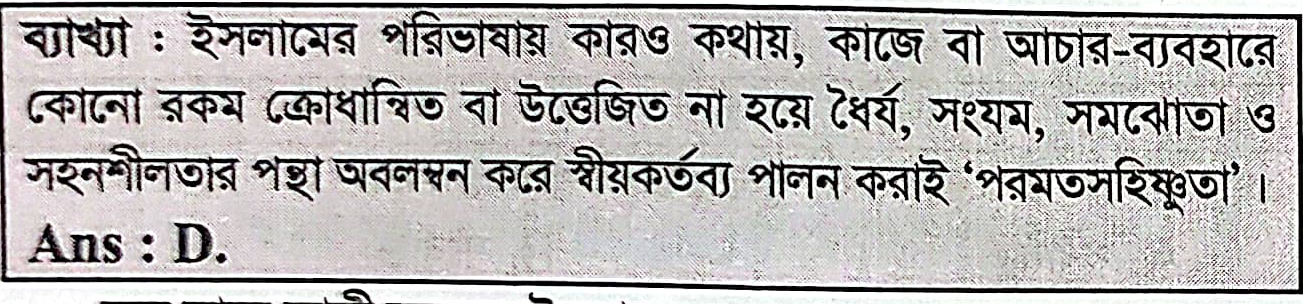 ব্যাখ্যা : ইসলামের পরিভাষায় কারও কথায়, কাজে বা আচার-ব্যবহারে
কোনো রকম ক্রোধান্বিত বা উত্তেজিত না হয়ে ধৈর্য, সংযম, সমঝোতা ও
সহনশীলতার পন্থা অবলম্বন করে স্বীয়কর্তব্য পালন করাই ‘পরমতসহিষ্ণুতা’।
Ans : D.